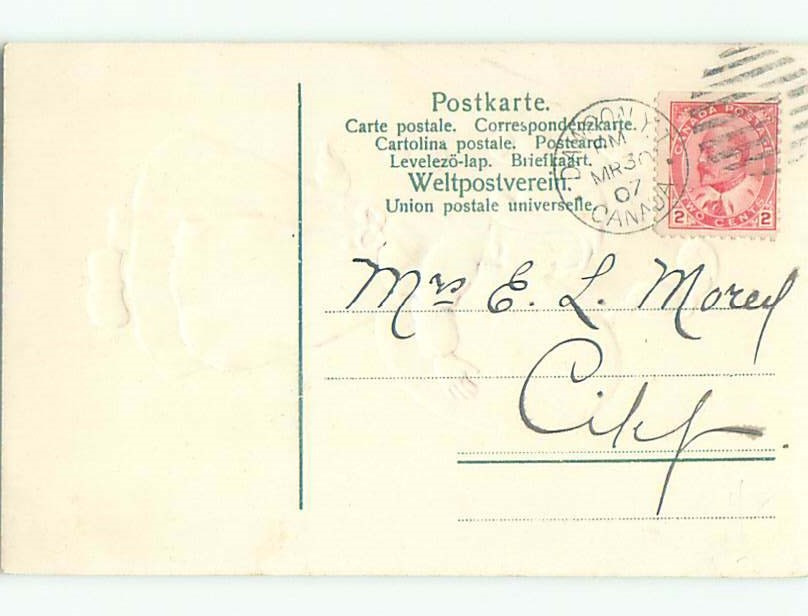 Postkarte.
Carte postale. Correspondenzkarte.
Cartolina postale. Postcard.
Levelező-lap. Briefkaart.
Weltpostverein.
Union postale universelle.
DAWSON. Y.T.
AM
MR 30
07
CANADA
CANADA POSTAGE
2 TWO CENTS 2
Mrs E. L. Morey
City